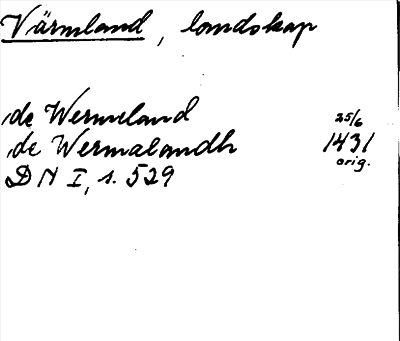 Värmland, landskap
de Wermeland 25/6
de Wermalandh 1431
orig.
DN I, s. 529